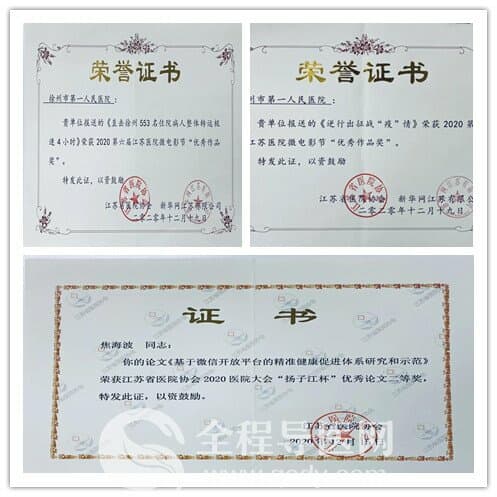 荣誉证书
徐州市第一人民医院：
贵单位报送的《直击徐州553名住院病人整体转运报
道4小时》荣获2020第六届江苏医院微电影节“优秀作品
奖”。
特发此证，以资鼓励
江苏省医院协会 新华网江苏有限公司
二〇二〇年十二月十九日
荣誉证书
徐州市第一人民医院：
贵单位报送的《逆行出征战“疫”情》荣获2020第
江苏医院微电影节“优秀作品奖”。
特发此证，以资鼓励
江苏省医院协会 新华网江苏有限公司
二〇二〇年十二月十九日
证书
焦海波 同志：
你的论文《基于微信开放平台的精准健康促进体系研究和示范》
荣获江苏省医院协会2020医院大会“扬子江杯”优秀论文二等奖，
特发此证，以资鼓励。
江苏省医院协会
全程导医网